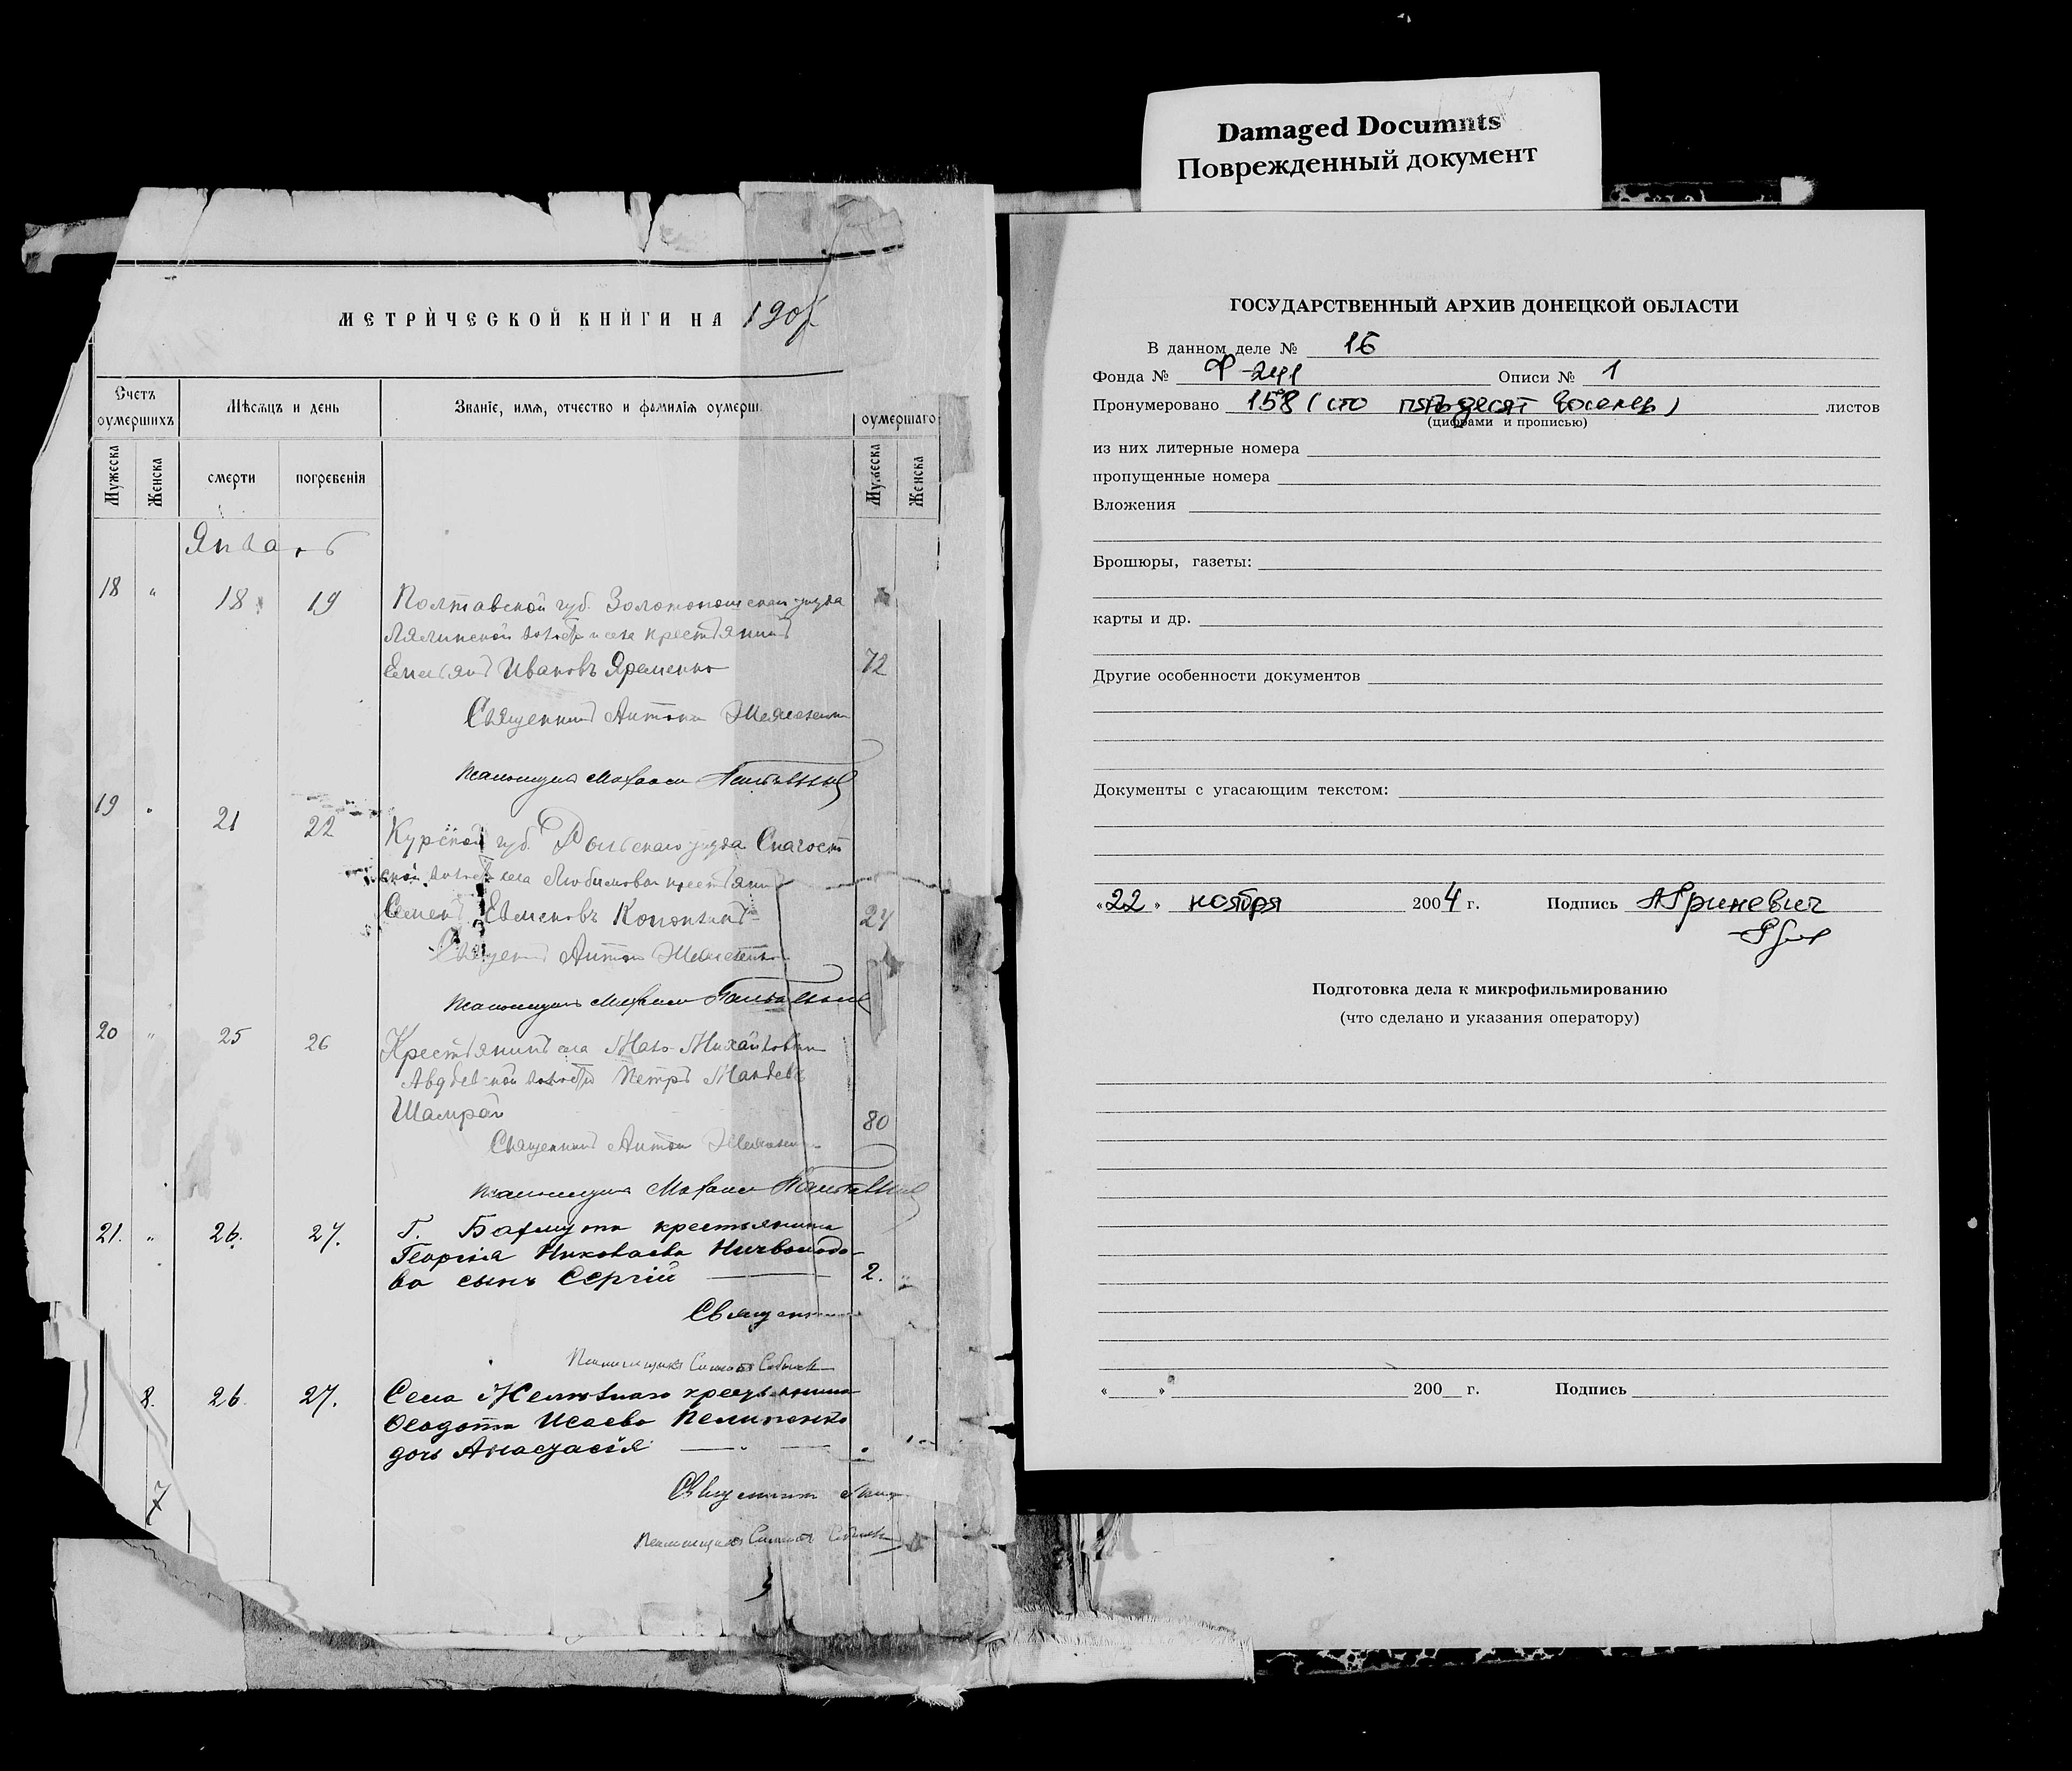 Damaged Documnts
Поврежденный документ
МЕТРИЧЕСКОЙ КНИГИ НА 190
Счетъ оумершихъ
Мѣсѧцъ и день
Званіе, имѧ, отчество и фамилїѧ оумерш.
оумершаго
Мужеска
Женска
смерти
погребенїѧ
Мужеска
Женска
Январь
18 " 18 19 Полтавской губ. Золотоношскаго уѣзда
волости и села крестьянинъ
Емельянъ Ивановъ Яременко 72
Священникъ Антоній
Псаломщикъ
19 " 21 22 Курской губ. Рыльскаго уѣзда
ской волости села Любимовки крестьянинъ
Семенъ 24
Священникъ Антоній
Псаломщикъ
20 " 25 26 Крестьянинъ села Мало-Михайловки
Авдѣевской волости Петръ
Шамрай 80
Священникъ Антоній
Псаломщикъ
21. " 26. 27. Г. Бахмута крестьянина
Георгія Николаева
ва сынъ Сергій 2. "
Священникъ
Псаломщикъ
8. 26. 27. Села Желѣзнаго крестьянина
Ѳеодота Исаева Пелипенко
дочь Анастасія
Священникъ
Псаломщикъ
7
ГОСУДАРСТВЕННЫЙ АРХИВ ДОНЕЦКОЙ ОБЛАСТИ
В данном деле № 16
Фонда № Ф-241 Описи № 1
Пронумеровано 158 (сто пятьдесят восемь) листов
(цифрами и прописью)
из них литерные номера
пропущенные номера
Вложения
Брошюры, газеты:
карты и др.
Другие особенности документов
Документы с угасающим текстом:
«22» ноября 2004 г. Подпись АГриневич
Подготовка дела к микрофильмированию
(что сделано и указания оператору)
« » 200 г. Подпись